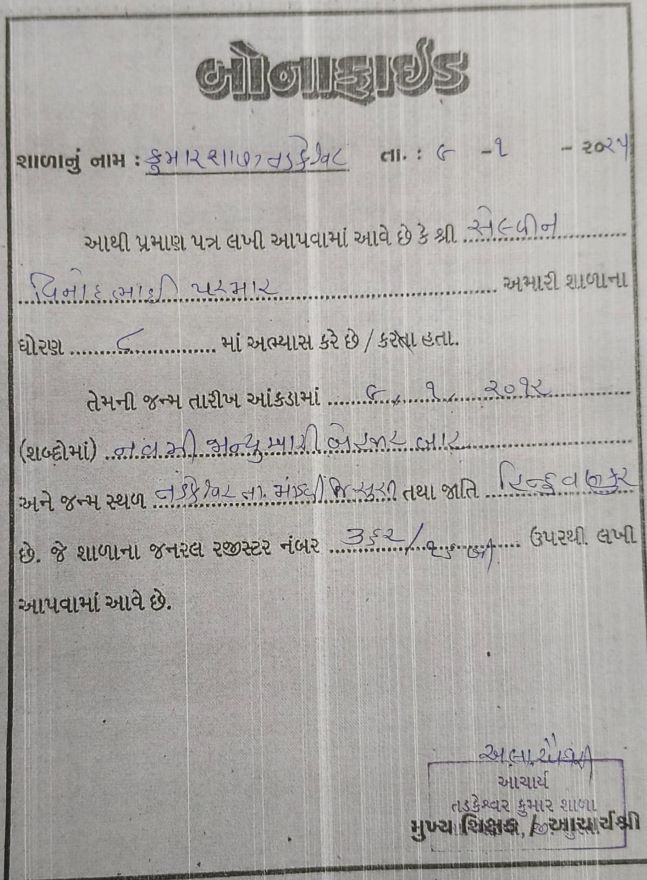 બોનાફાઈડ
શાળાનું નામ : કુમારશાળા તડકેશ્વર તા. : ૯ -૧ - ૨૦૨૫
આથી પ્રમાણ પત્ર લખી આપવામાં આવે છે કે શ્રી સેલ્વીન
વિનોદભાઈ પરમાર અમારી શાળાના
ધોરણ ૮ માં અભ્યાસ કરે છે / કરતા હતા.
તેમની જન્મ તારીખ આંકડામાં ૯, ૧, ૨૦૧૨
(શબ્દોમાં) નવમી જાન્યુઆરી બેહજાર બાર
અને જન્મ સ્થળ તડકેશ્વર તા. માંડવી જિ સુરત તથા જાતિ હિન્દુ વણકર
છે. જે શાળાના જનરલ રજીસ્ટર નંબર ૩૬૨/ ઉપરથી લખી
આપવામાં આવે છે.
આચાર્ય
તડકેશ્વર કુમાર શાળા
મુખ્ય શિક્ષક / આચાર્યશ્રી